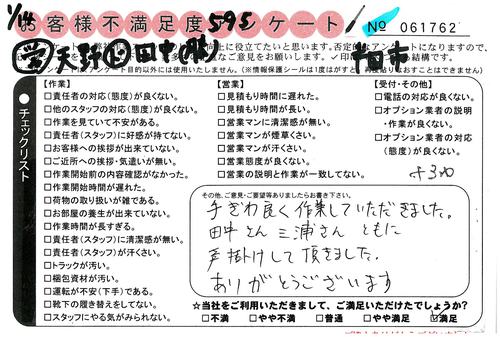 1/14 お客様不満足度595ンケート No 061762
営天野 田中 市
向上に役立てたいと思います。否定的なアンケートになりますので、
ご意見をお願いします。✓印 結構です。
アンケート目的以外には使用いたしません。(※情報保護シールは1度はがすと再度貼りなおすことはできません)
● チェックリスト
【作業】
□責任者の対応(態度)が良くない。
□他のスタッフの対応(態度)が良くない。
□作業を見ていて不安がある。
□責任者(スタッフ)に好感が持てない。
□お客様への挨拶が出来ていない。
□ご近所への挨拶・気遣いが無い。
□作業開始前の内容確認がなかった。
□作業開始時間が遅れた。
□荷物の取り扱いが雑である。
□お部屋の養生が出来ていない。
□作業時間が長すぎる。
□責任者(スタッフ)に清潔感が無い。
□責任者(スタッフ)が汗くさい。
□トラックが汚い。
□梱包資材が汚い。
□運転が不安(下手)である。
□靴下の履き替えをしてない。
□スタッフにやる気がみられない。
【営業】
□見積もり時間に遅れた。
□見積もり時間が長い。
□営業マンに清潔感が無い。
□営業マンが煙草くさい。
□営業マンが汗くさい。
□営業態度が良くない。
□営業の説明と作業が一致してない。
【受付・その他】
□電話の対応が良くない。
□オプション業者の説明
・作業が良くない。
□オプション業者の対応
(態度)が良くない。
+300
その他、ご意見・ご要望等ありましたらお書き下さい。
手ぎわ良く作業していただきました。
田中さん 三浦さん ともに
声掛けして頂きました。
ありがとうございます
☆当社をご利用いただきまして、ご満足いただけたでしょうか?
□不満 □やや不満 □普通 □やや満足 ☑満足